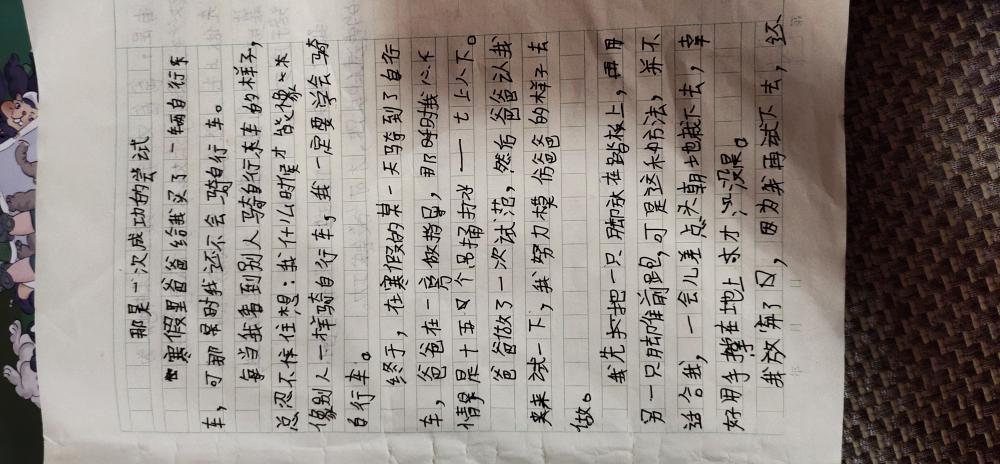 那是一次成功的尝试
寒假里爸爸给我买了一辆自行
车，可那时我还不会骑自行车。
每当我看到别人骑自行车的样子，
总忍不住想：我什么时候才能像
像别人一样骑自行车，我一定要学会骑
自行车。
终于，在寒假的某一天骑到了自行
车，爸爸在一旁做指导，那时我心
情是十五个吊桶打水——七上八下。
爸爸做了一次试范，然后爸爸让我
来试一下，我努力模仿爸爸的样子去
做。
我先把一只脚放在踏板上，再
另一只脚往前跑，可是这种方法，并不
适合我，一会儿差点头朝地栽下去，幸
好用手撑在地上才没摔。
我放弃了，因为我再试下去，还